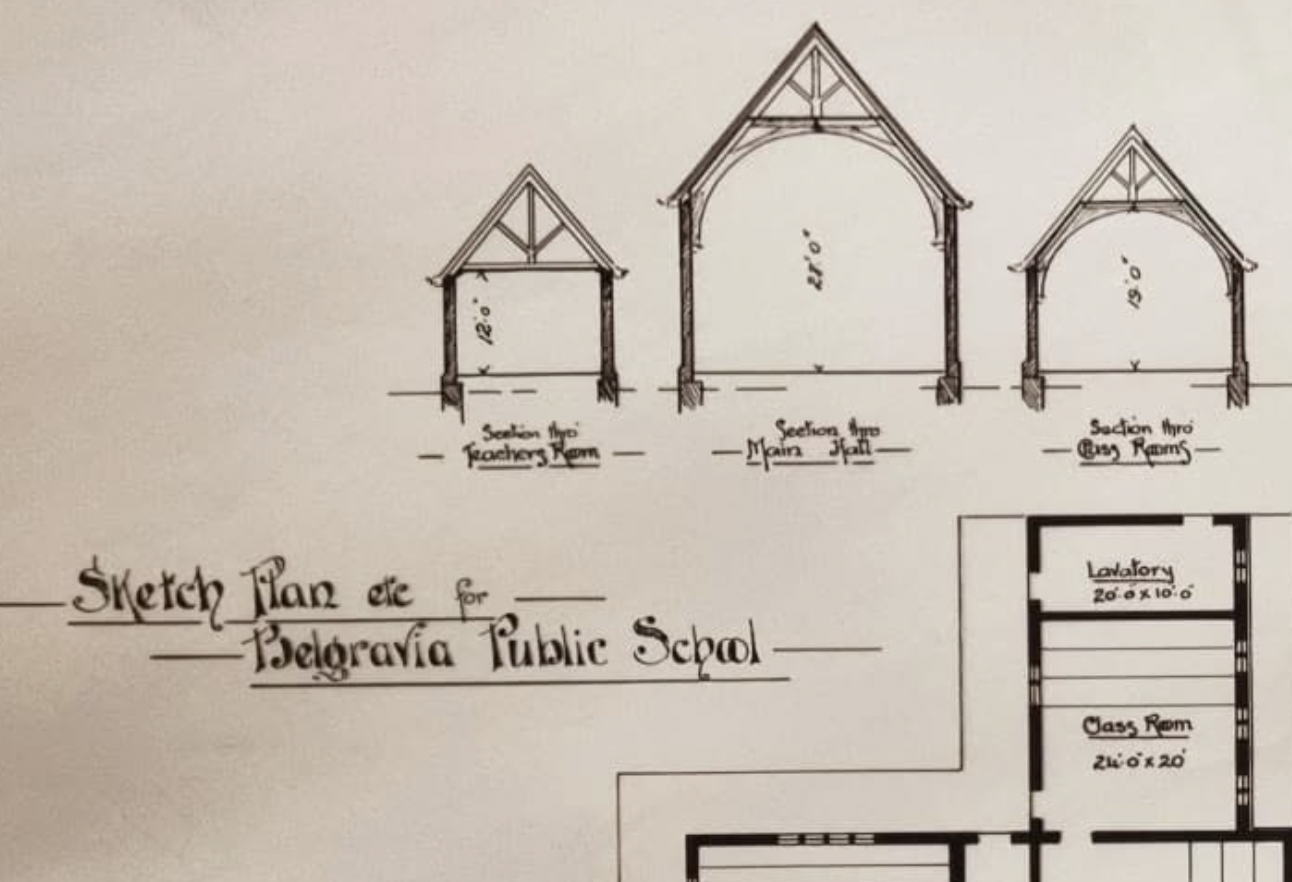 12'.0"
28'.0"
19'.0"
Section thro'
Teachers Room
Section thro
Main Hall
Section thro'
Class Rooms
Sketch Plan etc for
Belgravia Public School
Lavatory
20'.0" x 10'.0"
Class Room
24'.0" x 20'